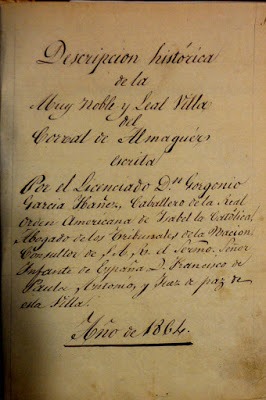 Descripcion histórica
de la
Muy Noble y Leal Villa
del
Corral de Almaguér
escrita
Por el Licenciado Dn. Gorgonio
Garcia Ibañez, Caballero de la Real
Orden Americana de Isabel la Católica,
Abogado de los Tribunales de la Nacion
Consultor de S. A. R. el Sermo. Señor
Infante de España D. Francisco de
Paula Antonio, y Juez de paz de
esta Villa.
Año de 1864.